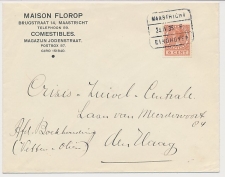 MAISON FLOROP
BRUGSTRAAT 14, MAASTRICHT
TELEPHOON 59.
COMESTIBLES.
MAGAZIJN JODENSTRAAT.
POSTBOX 67.
MAASTRICHT
EINDHOVEN
Crisis-Zuivel-Centrale
Laan van Meerdervoort
Afd. Boekhouding
(Vetten-Oliën)
den Haag